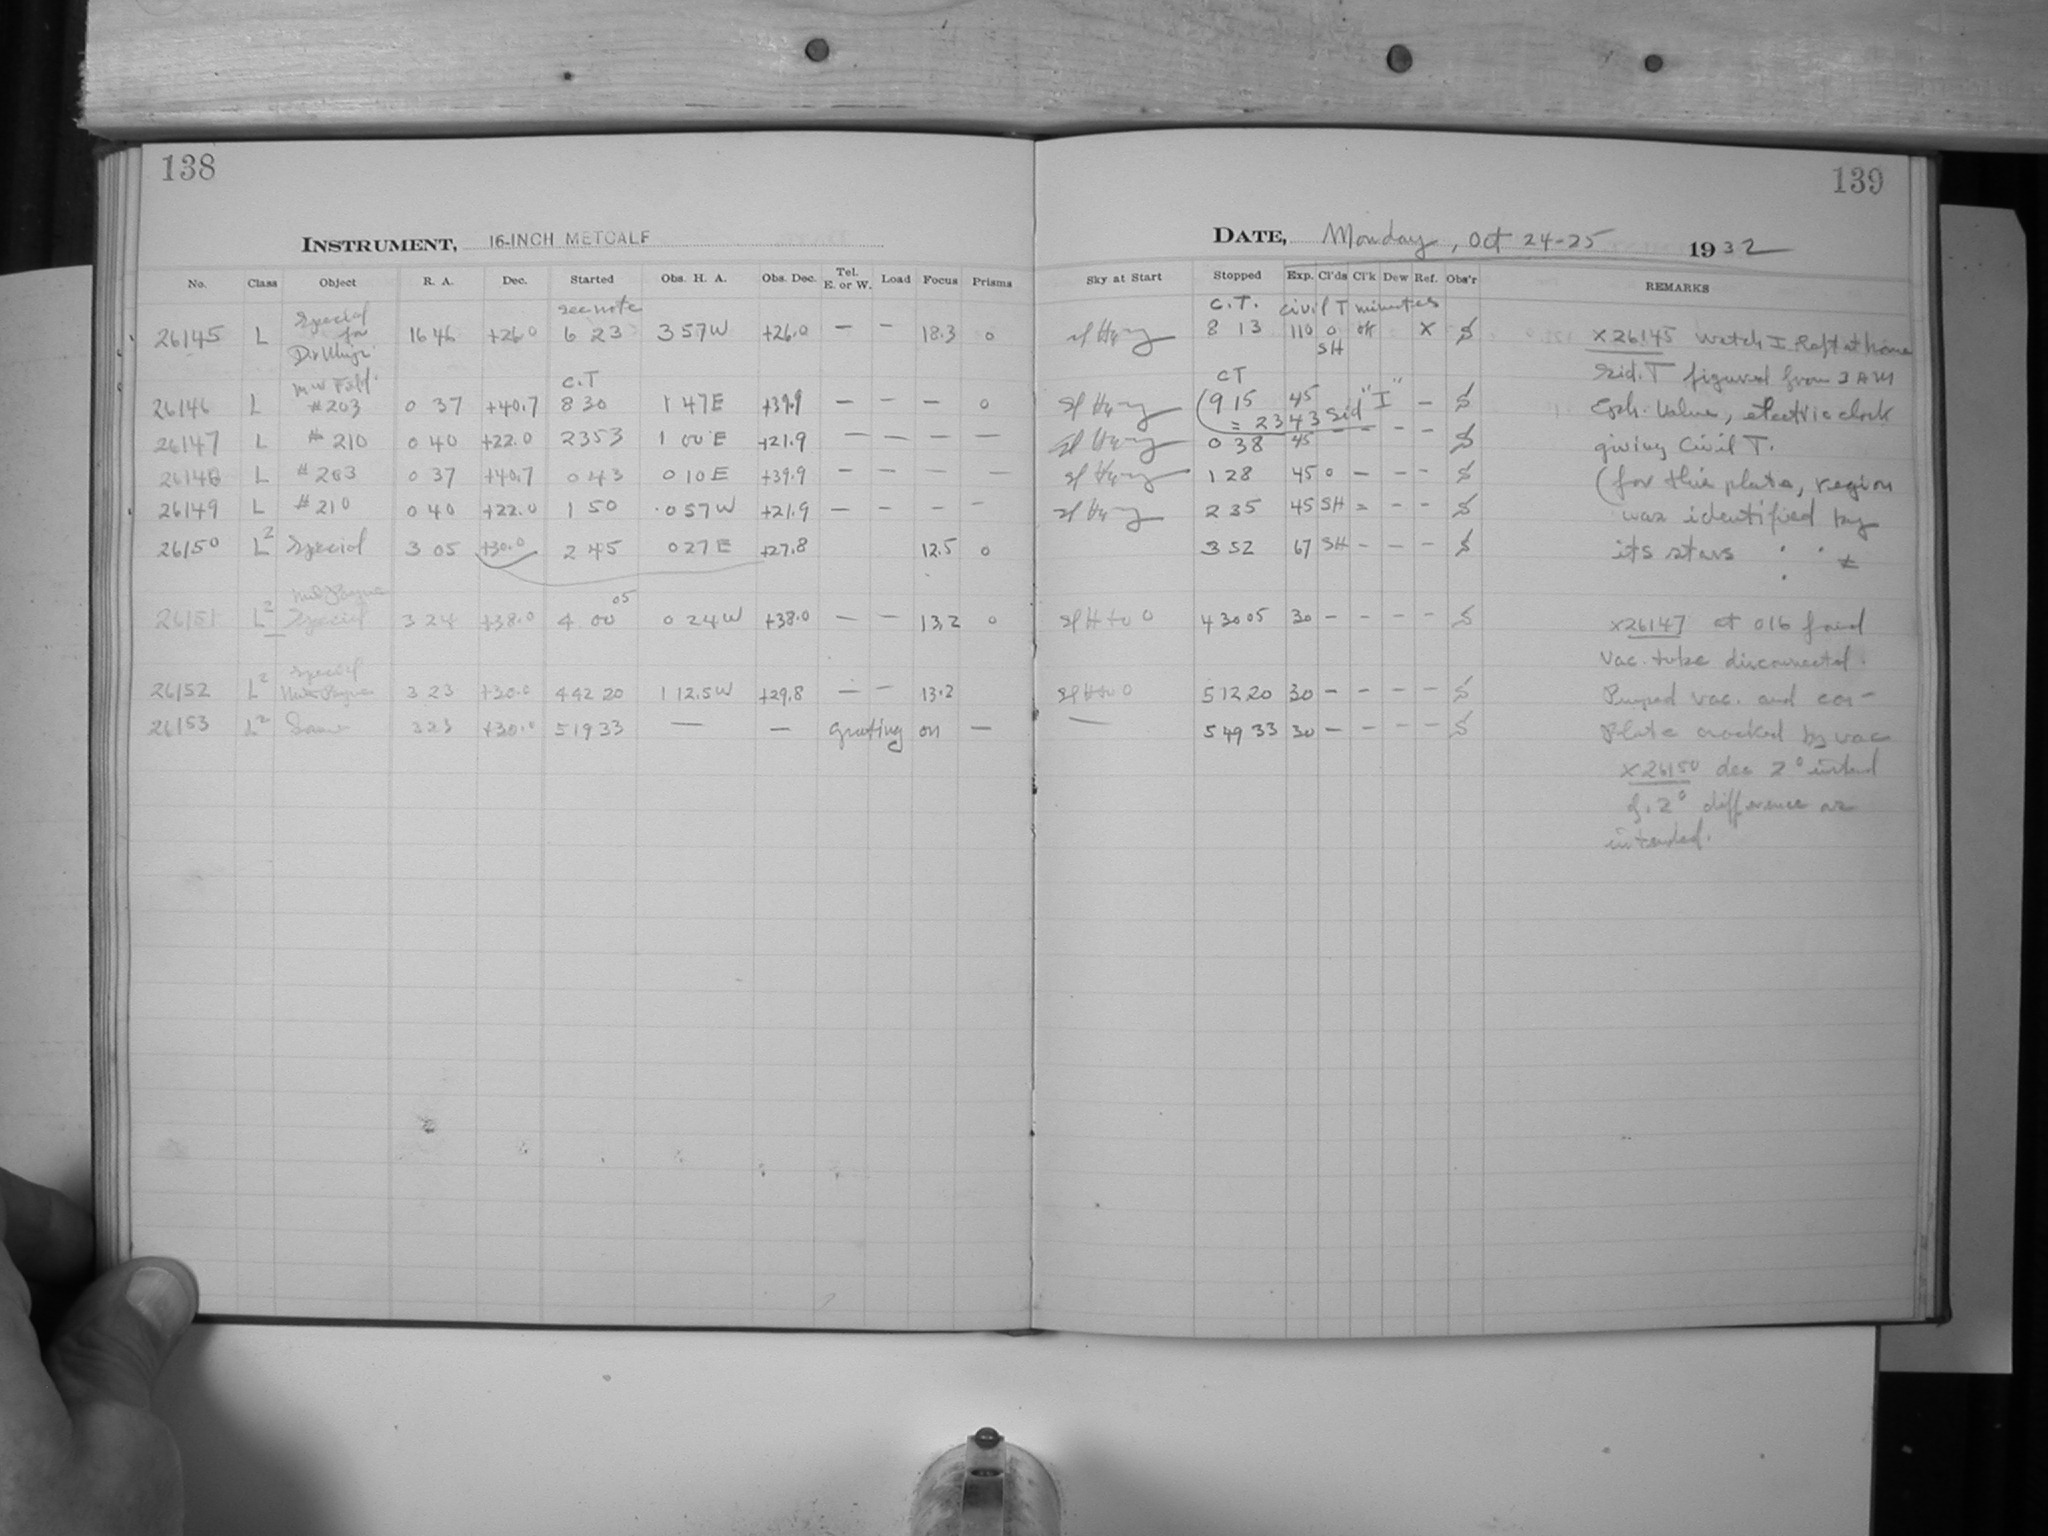 138
INSTRUMENT, 16-INCH METCALF
No. Class Object R. A. Dec. Started Obs. H. A. Obs. Dec. Tel. E. or W. Load Focus Prisms
see note
Special for Dr
26145 L 16 46 +26.0 6 23 3 57 W +26.0 — — 18.3 0
C.T
26146 L #203 0 37 +40.7 8 30 1 47 E +39.9 — — — 0
26147 L #210 0 40 +22.0 23 53 1 00 E +21.9 — — — —
26148 L #203 0 37 +40.7 0 43 0 10 E +39.9 — — — —
26149 L #210 0 40 +22.0 1 50 0 57 W +21.9 — — — —
26150 L² Special 3 05 +30.0 2 45 0 27 E +27.8 12.5 0
Miss Payne
26151 L² Special 3 24 +38.0 4 00 05 0 24 W +38.0 — — 13.2 0
Special
26152 L² Miss Payne 3 23 +30.0 4 42 20 1 12.5 W +29.8 — — 13.2
26153 L² Same 3 23 +30.0 5 19 33 — — Grating on —
139
DATE, Monday, Oct 24-25 1932
Sky at Start Stopped Exp. Cl'ds Cl'k Dew Ref. Obs'r REMARKS
C.T. Civil T minutes
8 13 110 0 ok X S
SH
CT
(9 15 45 "I" — S
= 23 43 Sid
0 38 45 — — — — S
1 28 45 0 — — — S
2 35 45 SH = — — S
3 52 67 SH — — — S
Sl H to 0 4 30 05 30 — — — — S
Sl H to 0 5 12 20 30 — — — — S
— 5 49 33 30 — — — — S
X 26145 Watch I left at home
Sid. T figured from 3 AM
Eph. Value, electric clock
giving Civil T.
(for this plate, region
was identified by
its stars
X 26147 at 016 found
Vac. tube disconnected.
Pumped vac. and con-
Plate cracked by vac
X 26150 dec 2°
2° difference as
intended.